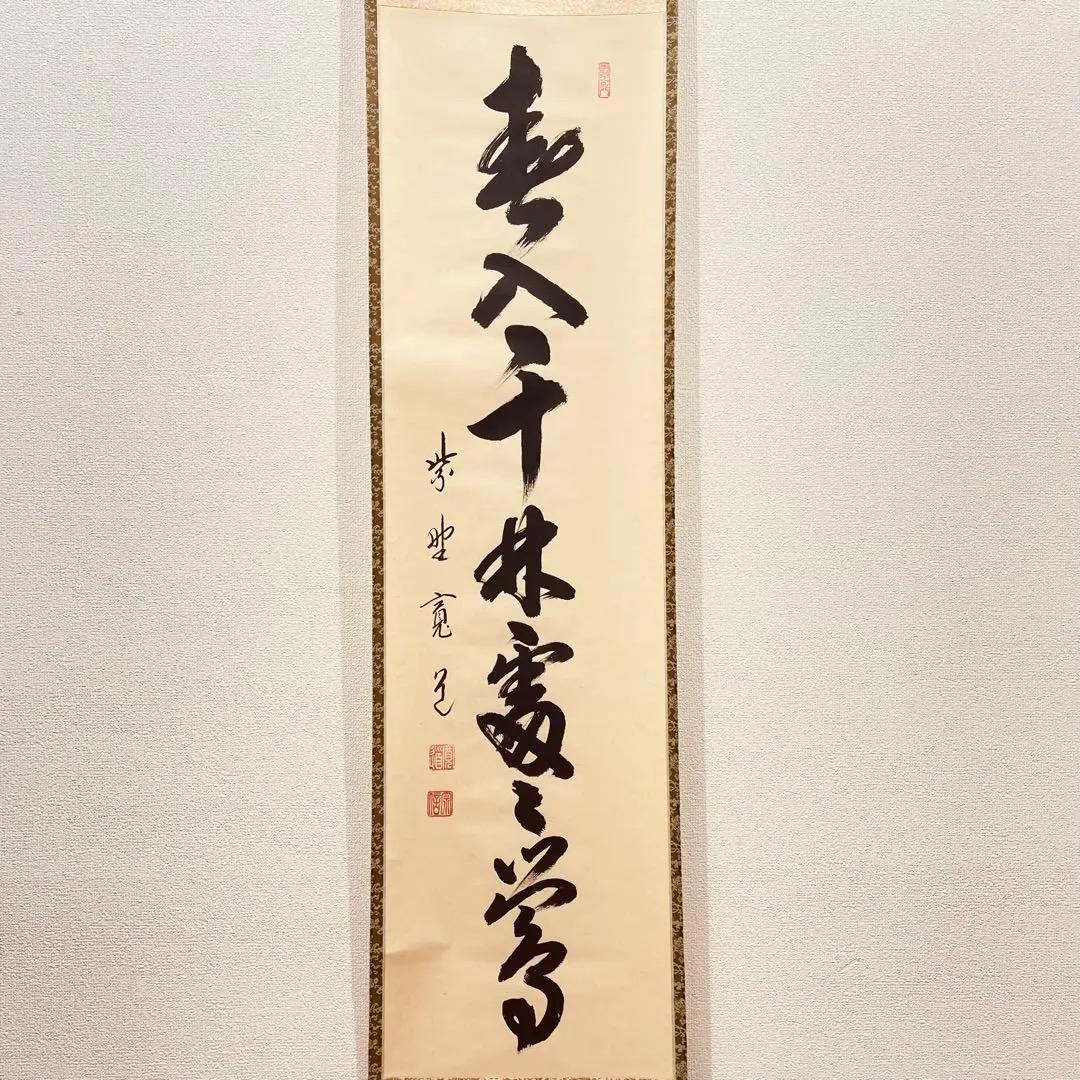 春入千林處〻鶯
紫野寛道